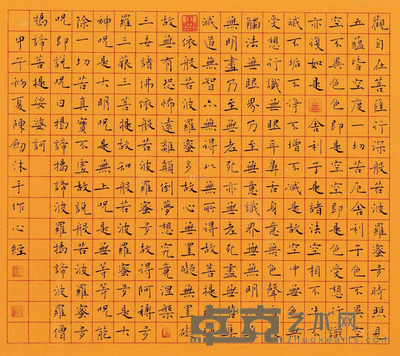 觀自在菩薩行深般若波羅蜜多時照見
五蘊皆空度一切苦厄舍利子色不異空
空不異色色即是空空即是色受想行識
亦復如是舍利子是諸法空相不生不
滅不垢不淨不增不減是故空中無色無
受想行識無眼耳鼻舌身意無色聲香味
觸法無眼界乃至無意識界無無明亦無
無明盡乃至無老死亦無老死盡無苦集
滅道無智亦無得以無所得故菩提薩埵
依般若波羅蜜多故心無罣礙無罣礙
故無有恐怖遠離顛倒夢想究竟涅槃
三世諸佛依般若波羅蜜多故得阿耨多
羅三藐三菩提故知般若波羅蜜多是大
神呪是大明呪是無上呪是無等等呪能
除一切苦真實不虛故說般若波羅蜜多
呪即說呪曰揭諦揭諦波羅揭諦波羅僧
揭諦菩提娑婆訶
甲午初夏陳勛沐手作心經
卓克艺术网